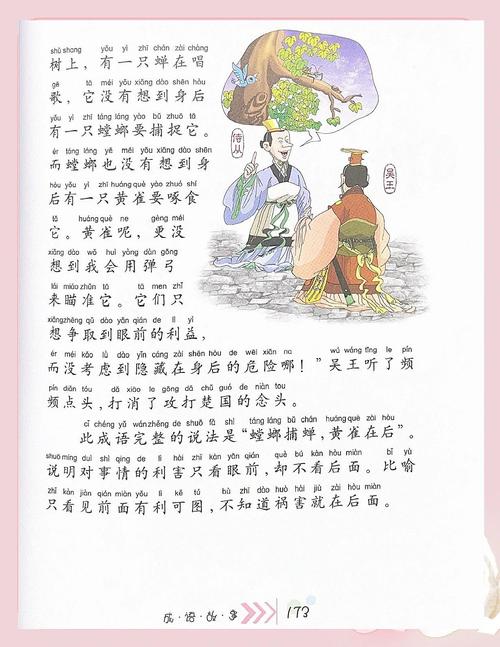 shù shang yǒu yì zhī chán zài chàng
树上，有一只蝉在唱
gē tā méi yǒu xiǎng dào shēn hòu
歌，它没有想到身后
yǒu yì zhī táng láng yào bǔ zhuō tā
有一只螳螂要捕捉它。
ér táng láng yě méi yǒu xiǎng dào shēn
而螳螂也没有想到身
hòu yǒu yì zhī huáng què yào zhuó shí
后有一只黄雀要啄食
tā huáng què ne gèng méi
它。黄雀呢，更没
xiǎng dào wǒ huì yòng dàn gōng
想到我会用弹弓
lái miáo zhǔn tā tā men zhǐ
来瞄准它。它们只
xiǎng zhēng qǔ dào yǎn qián de lì yì
想争取到眼前的利益，
ér méi kǎo lǜ dào yǐn cáng zài shēn hòu de wēi xiǎn na wú wáng tīng le pín
而没考虑到隐藏在身后的危险哪！”吴王听了频
pín diǎn tóu dǎ xiāo le gōng dǎ chǔ guó de niàn tou
频点头，打消了攻打楚国的念头。
cǐ chéng yǔ wán zhěng de shuō fǎ shì táng láng bǔ chán huáng què zài hòu
此成语完整的说法是“螳螂捕蝉，黄雀在后”。
shuō míng duì shì qing de lì hài zhǐ kàn yǎn qián què bú kàn hòu miàn bǐ yù
说明对事情的利害只看眼前，却不看后面。比喻
zhǐ kàn jiàn qián miàn yǒu lì kě tú bù zhī dào huò hài jiù zài hòu miàn
只看见前面有利可图，不知道祸害就在后面。
侍从
吴王
成·语·故·事 173